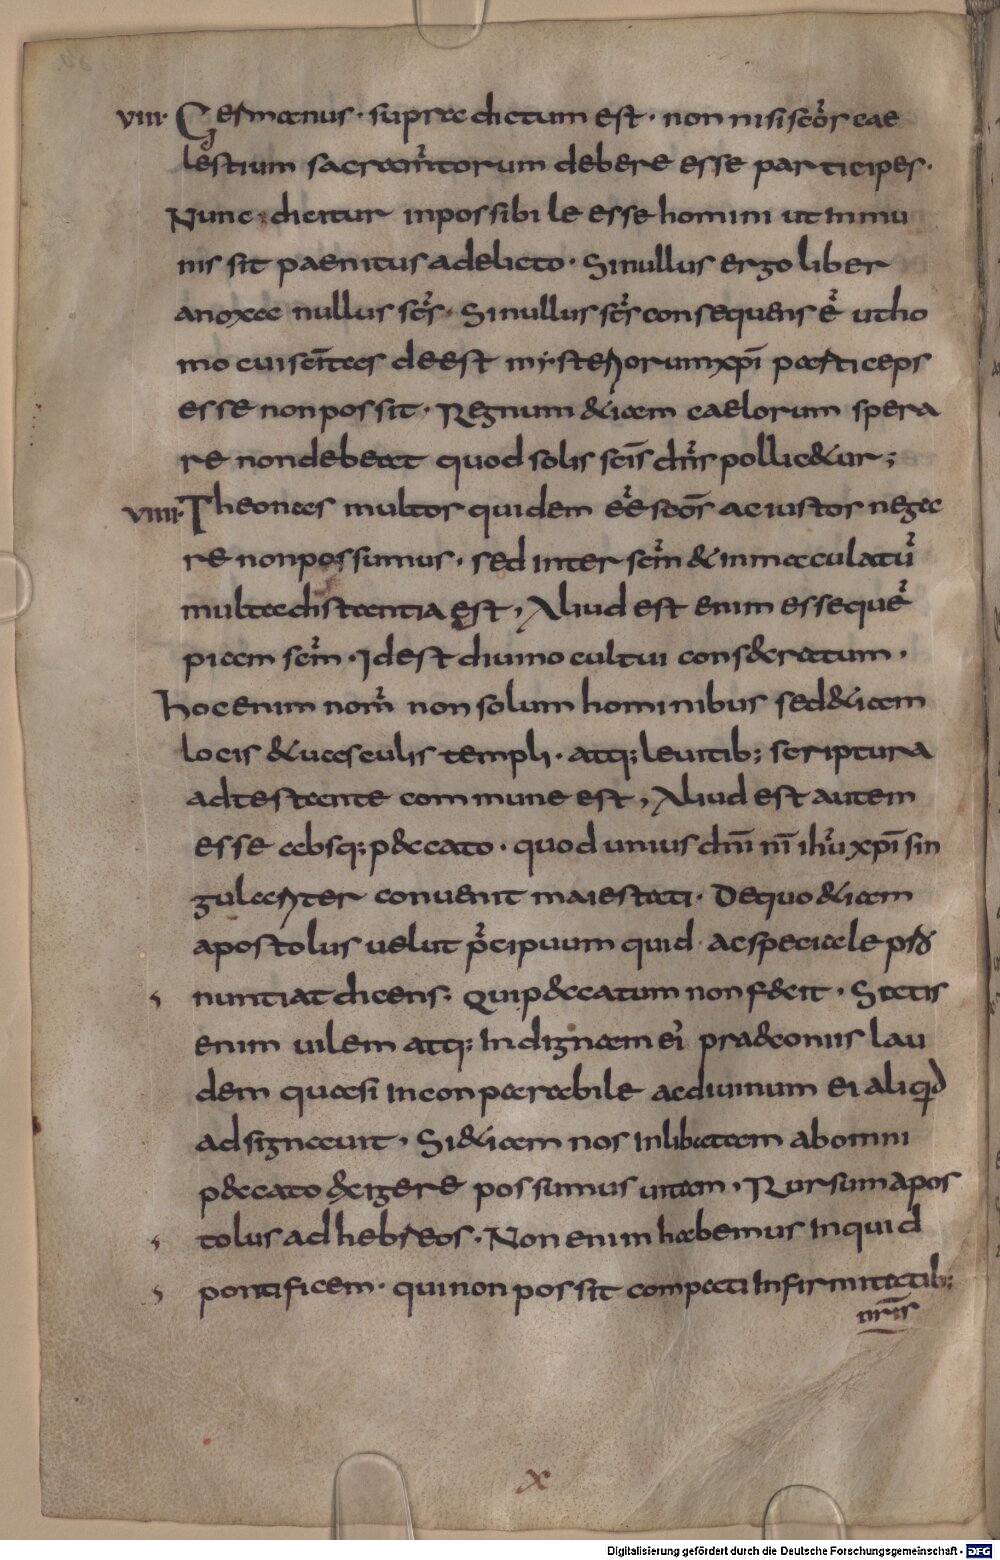 VIII· Germanus · supra dictum est · non nisi scōs cae
lestium sacram̄torum debere esse participes ·
Nunc · dicitur inpossibile esse homini ut inmu
nis sit paenitus a delicto · Si nullus ergo liber
a noxa nullus scs̄ · Si nullus scs̄ consequens ē ut ho
mo cui scītas deest mysteriorum xpī particeps
esse non possit · Regnum &iam caelorum spera
re non debeat quod solis scīs dns̄ pollic&ur ;
VIIII· Theonas multos quidem eē scōs ac iustos nega
re non possumus · sed inter scm̄ & inmaculatū
multa distantia est , Aliud est enim esse quē
piam scm̄ · Idest diuino cultui cons&cratum ·
hoc enim nom̄ non solum hominibus sed &iam
locis & uasculis templi · atq; leuitib; scriptura
adtestante commune est , Aliud est autem
esse absq; p&ccato · quod unius dnī nī ihū xpī sin
gulariter conuenit maiestati · De quo &iam
apostolus uelut p̄cipuum quid · ac speciale pro
nuntiat dicens : Qui p&ccatum non f&cit · Satis
enim uilem atq; Indignam ei pra&coniis lau
dem quasi Inconparabile ac diuinum ei aliqd
adsignauit , Si &iam nos Inlibatam ab omni
p&ccato d&gere possumus uitam , Rursum apos
tolus ad hebreos · Non enim habemus Inquid
pontificem · qui non possit compati Infirmitatib;
nrīs
X
Digitalisierung gefördert durch die Deutsche Forschungsgemeinschaft - DFG